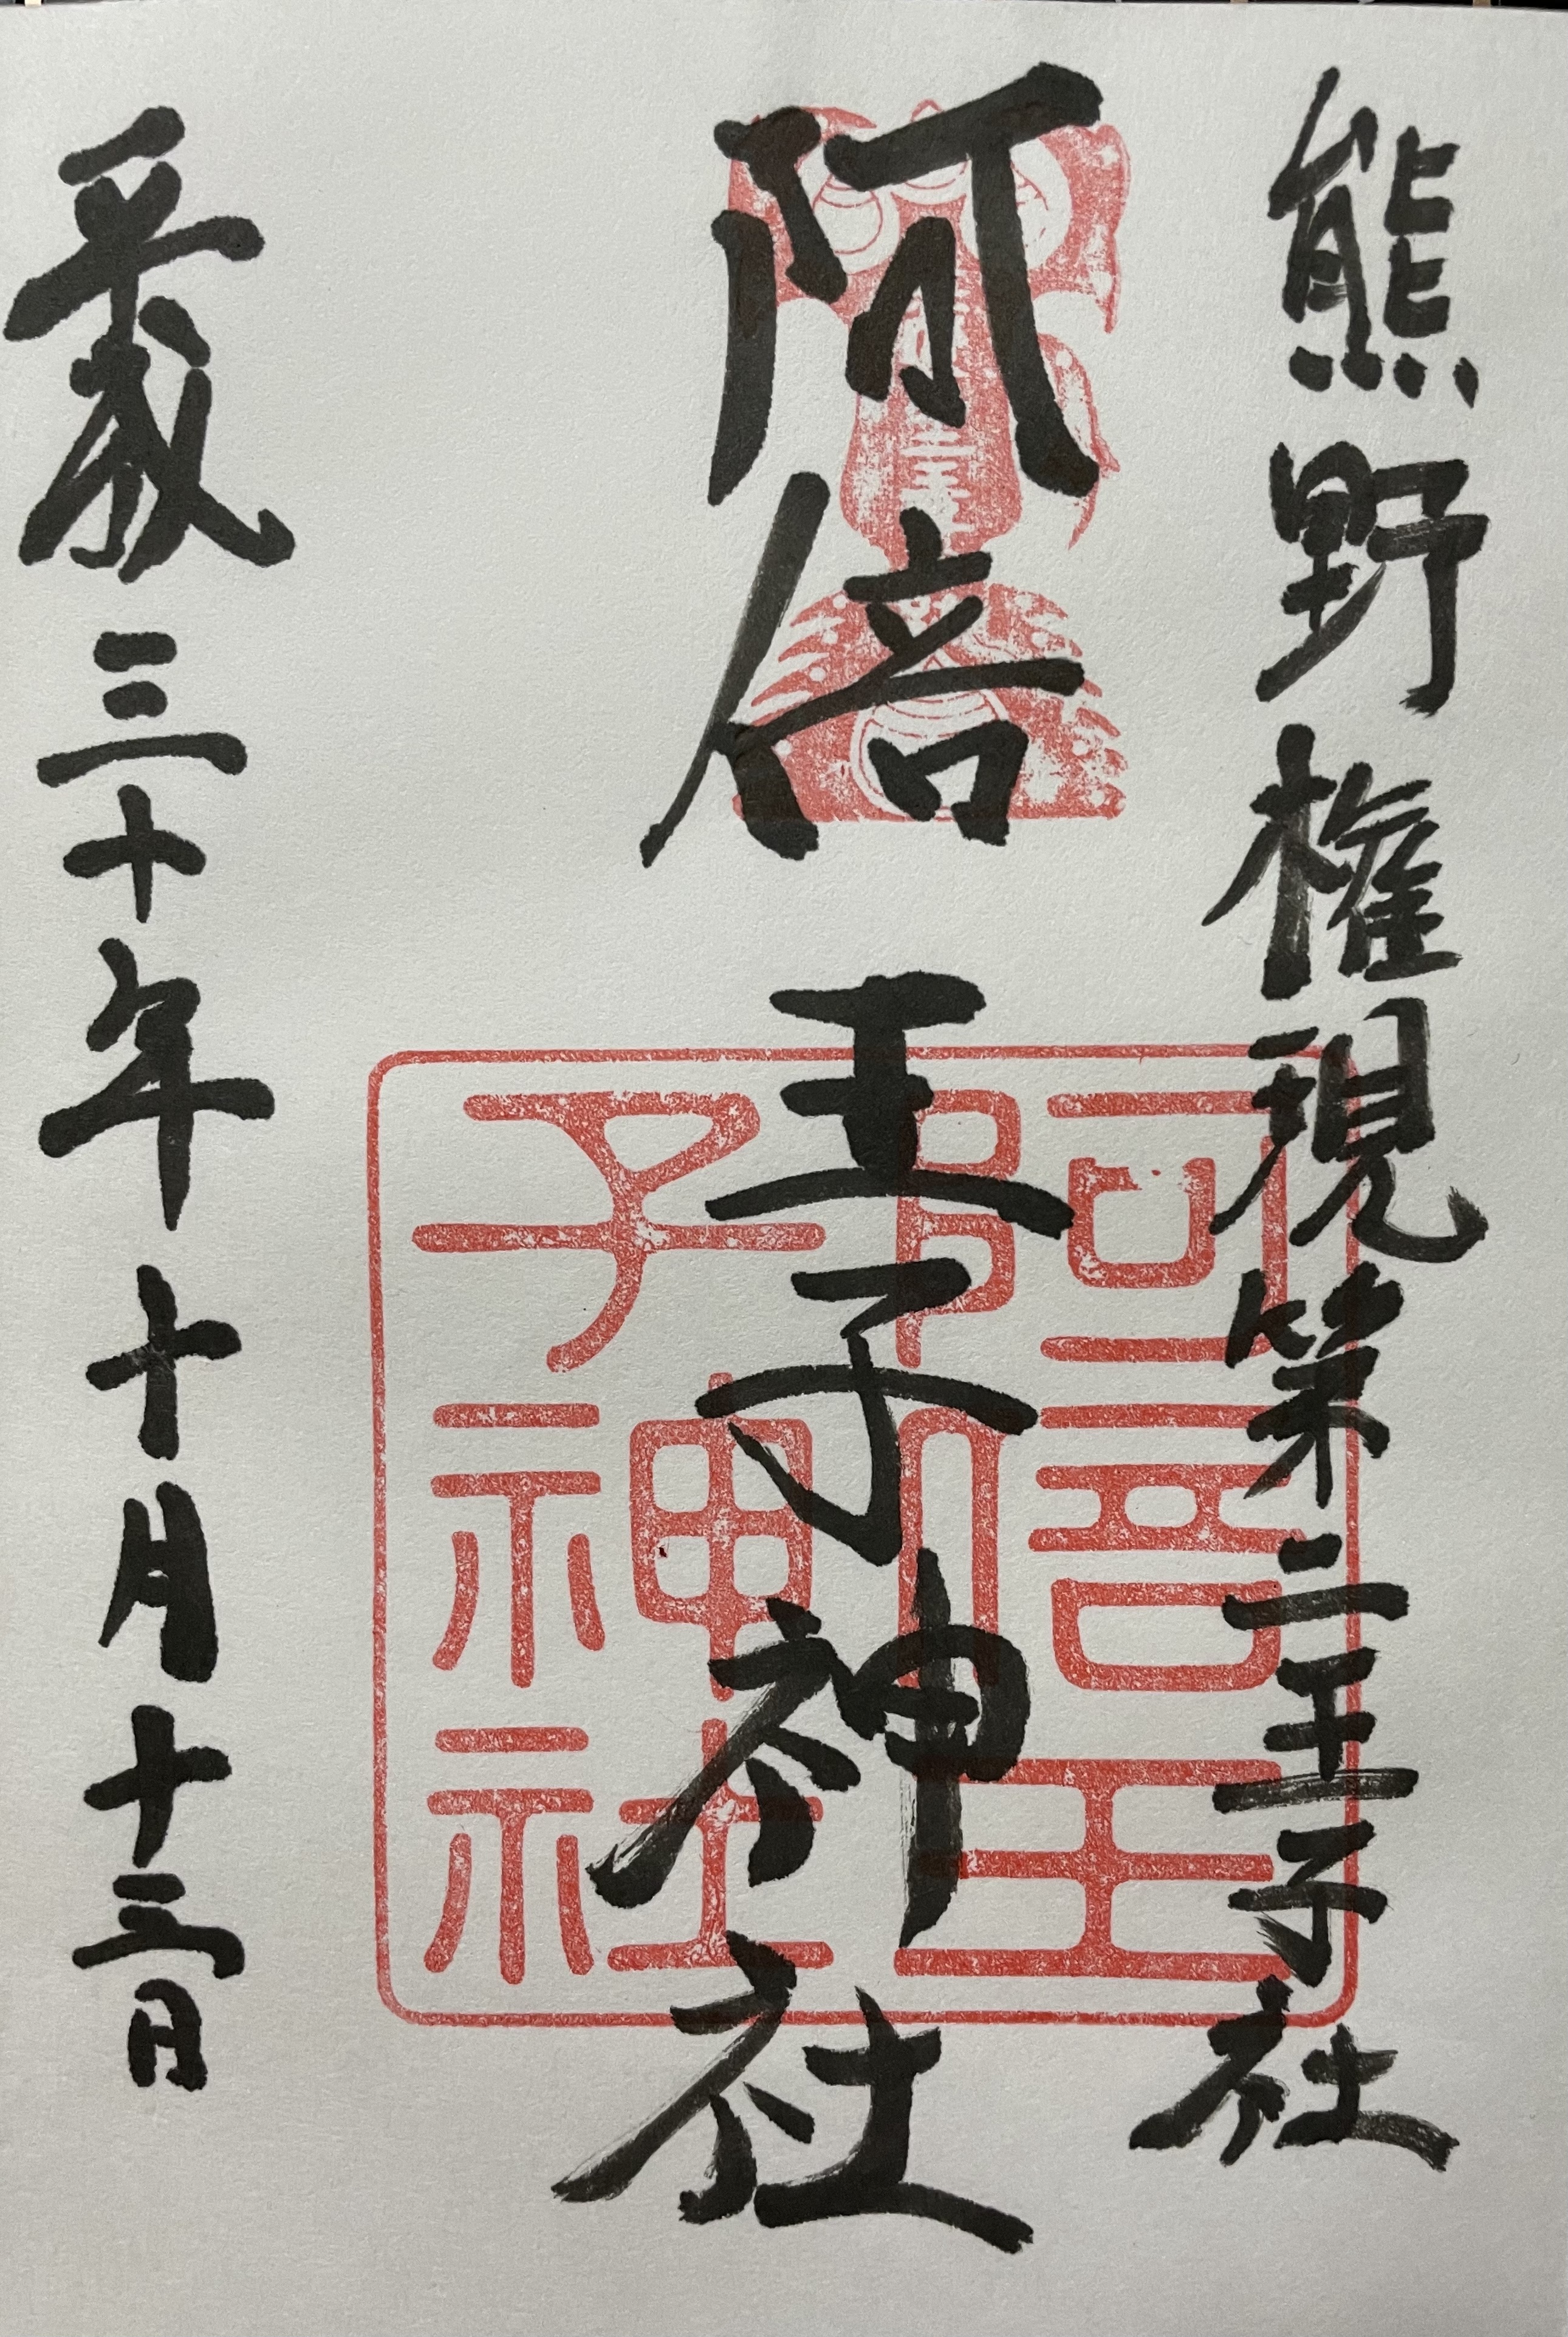 熊野権現第二王子社
阿倍王子神社
平成三十年十月十三日
阿倍王
子神社